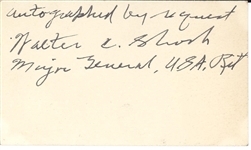 Autographed by request
Walter C. Short
Major General, U.S.A. Ret